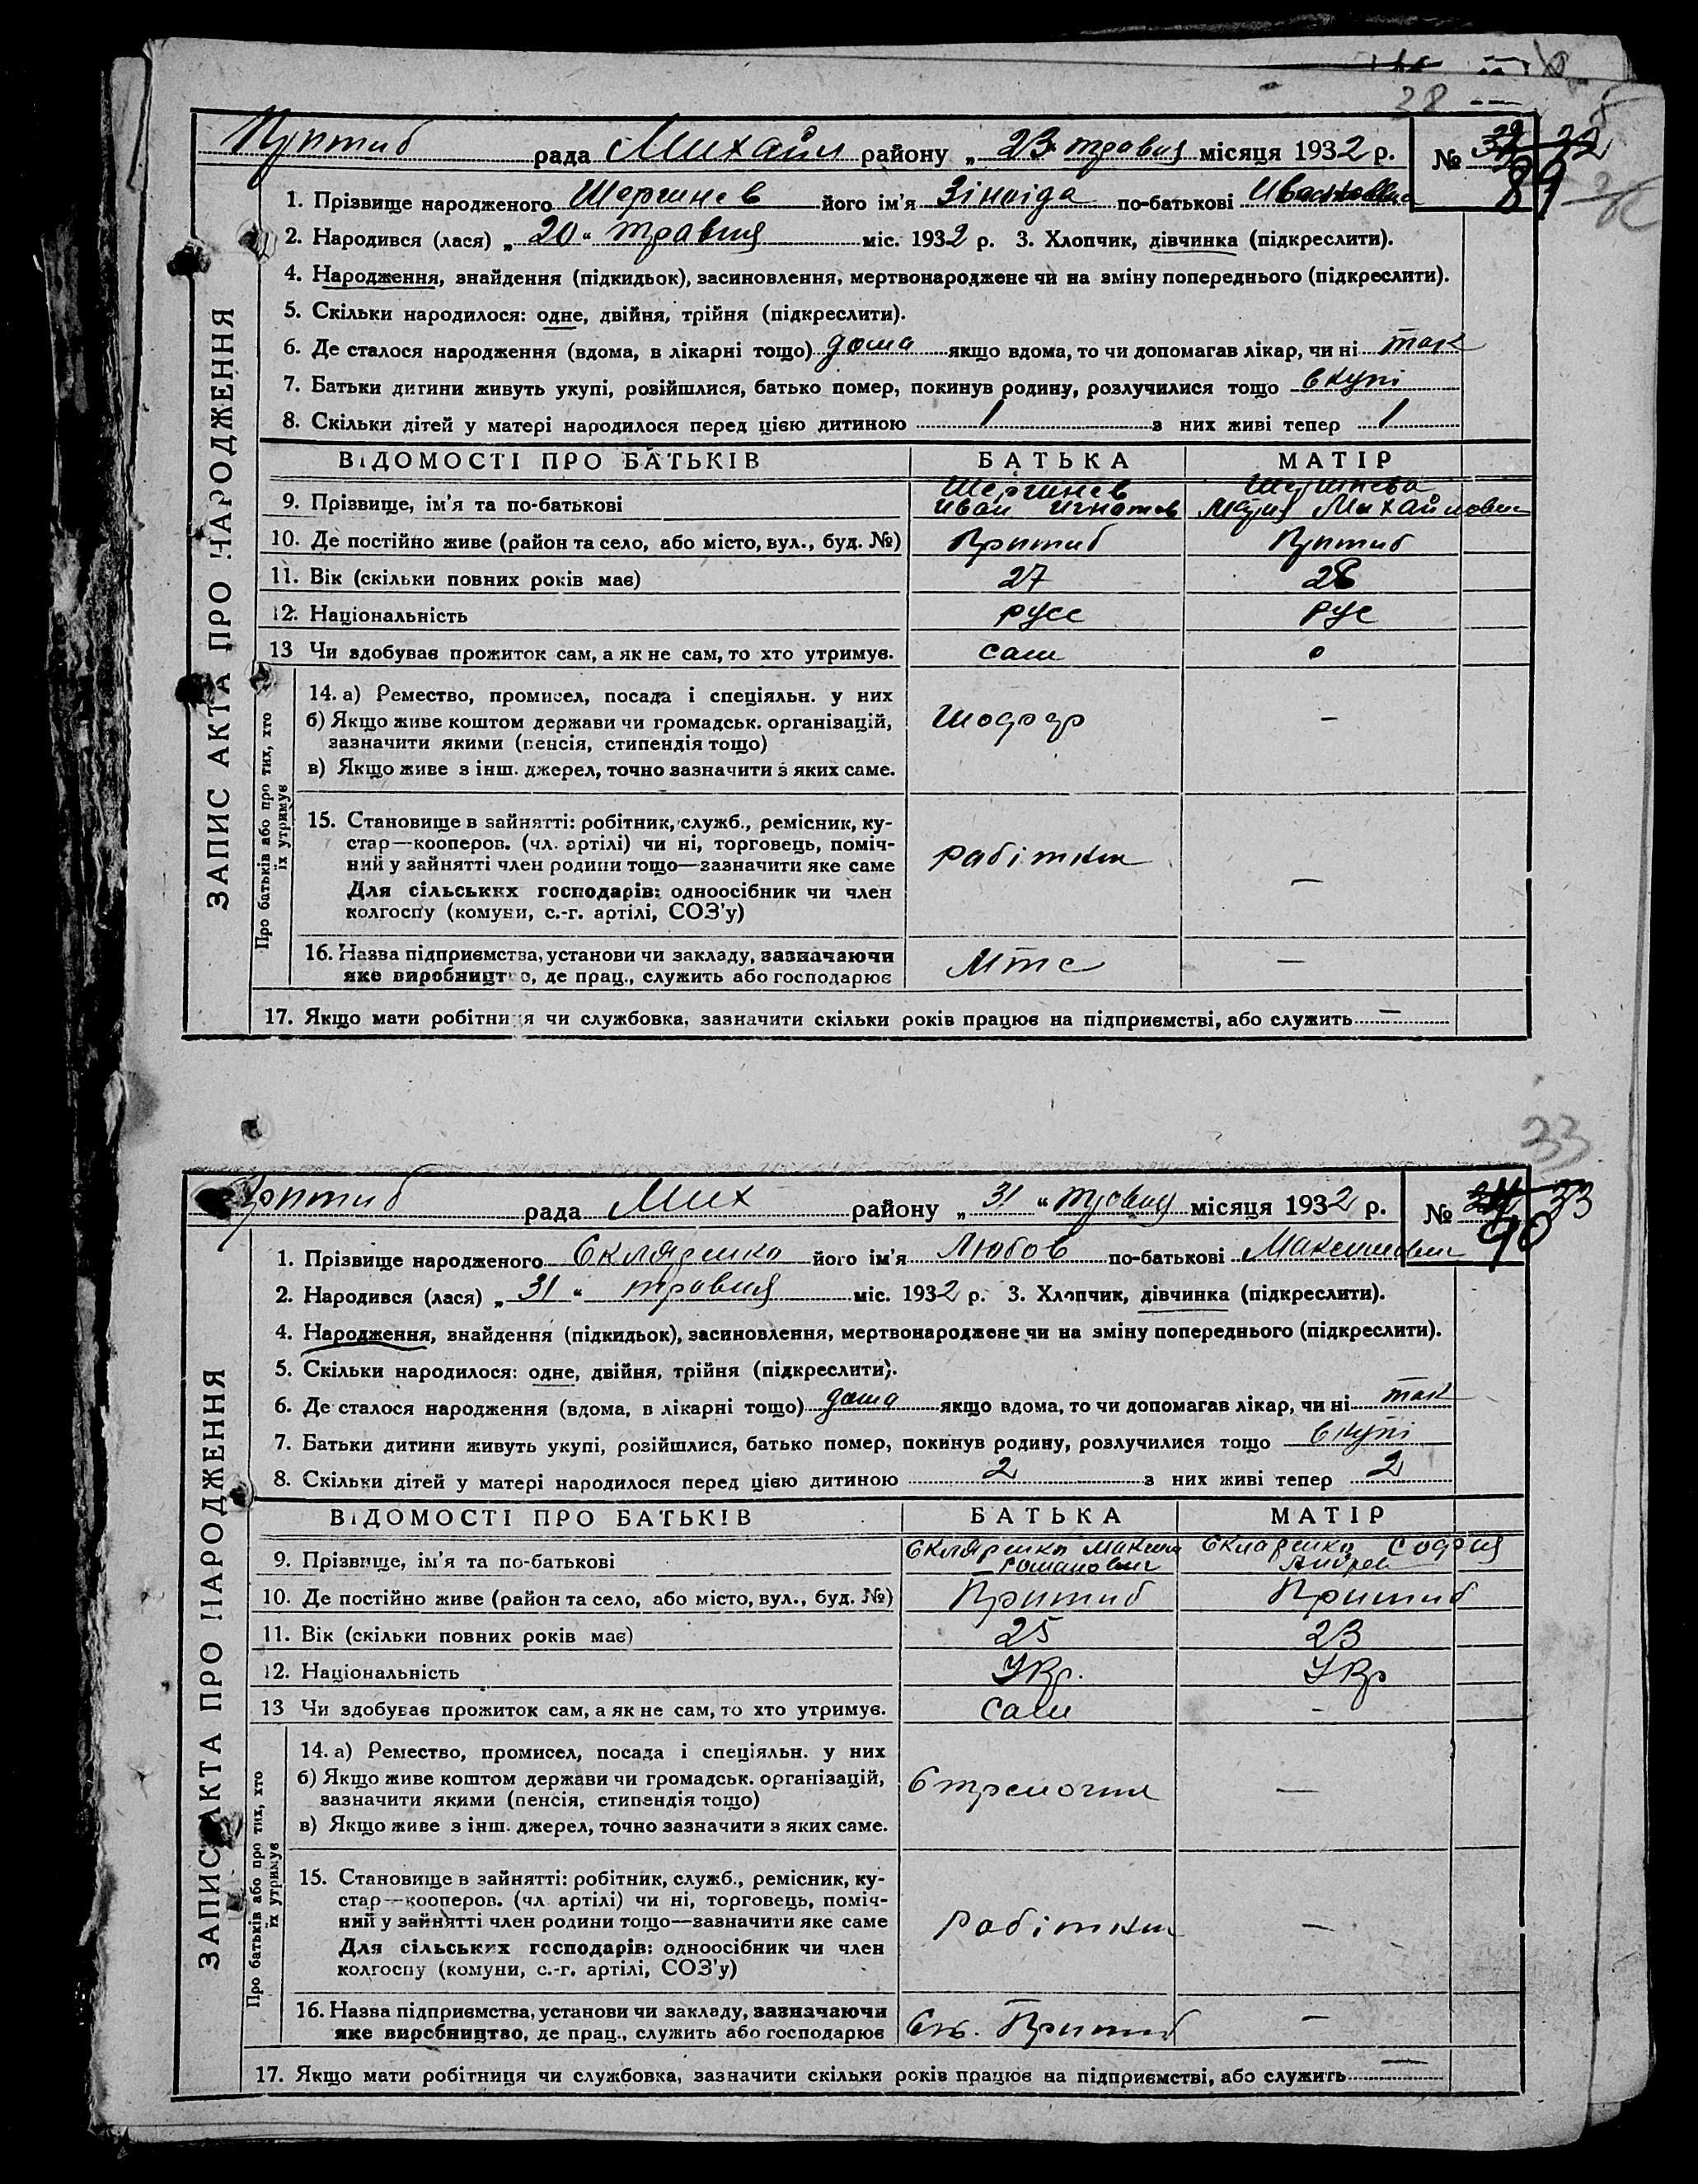 28
рада Михайл району „ 23 " травня місяця 1932 р. № 32
89
1. Прізвище народженого Шершнев його ім'я Зіноіда по-батькові
2. Народився (лася) „ 20 " травня міс. 1932 р. 3. Хлопчик, дівчинка (підкреслити).
4. Народження, знайдення (підкидьок), засиновлення, мертвонароджене чи на зміну попереднього (підкреслити).
5. Скільки народилося: одне, двійня, трійня (підкреслити).
6. Де сталося народження (вдома, в лікарні тощо) дома якщо вдома, то чи допомагав лікар, чи ні так
7. Батьки дитини живуть укупі, розійшлися, батько помер, покинув родину, розлучилися тощо вкупі
8. Скільки дітей у матері народилося перед цією дитиною 1 з них живі тепер 1
ЗАПИС АКТА ПРО НАРОДЖЕННЯ
ВІДОМОСТІ ПРО БАТЬКІВ БАТЬКА МАТІР
9. Прізвище, ім'я та по-батькові Шершнев Иван Игнатов Марія Михайловн
10. Де постійно живе (район та село, або місто, вул., буд. №)
11. Вік (скільки повних років має) 27 26
12. Національність русс рус
13 Чи здобував прожиток сам, а як не сам, то хто утримує. сам
Про батьків або про тих, хто їх утримує
14. а) Ремество, промисел, посада і спеціяльн. у них
б) Якщо живе коштом держави чи громадськ. організацій,
зазначити якими (пенсія, стипендія тощо)
в) Якщо живе з інш. джерел, точно зазначити з яких саме.
15. Становище в зайнятті: робітник, служб., ремісник, ку-
стар—кооперов. (чл. артілі) чи ні, торговець, поміч-
ний у зайнятті член родини тощо—зазначити яке саме
Для сільських господарів: одноосібник чи член
колгоспу (комуни, с.-г. артілі, СОЗ'у)
рабітник —
16. Назва підприємства, установи чи закладу, зазначаючи
яке виробництво, де прац., служить або господарює
Мтс —
17. Якщо мати робітниця чи службовка, зазначити скільки років працює на підприємстві, або служить —
33
рада Мих району „ 31 " травня місяця 1932 р. № 33
90
1. Прізвище народженого Скляренко його ім'я Любов по-батькові Максимовн
2. Народився (лася) „ 31 " травня міс. 1932 р. 3. Хлопчик, дівчинка (підкреслити).
4. Народження, знайдення (підкидьок), засиновлення, мертвонароджене чи на зміну попереднього (підкреслити).
5. Скільки народилося: одне, двійня, трійня (підкреслити).
6. Де сталося народження (вдома, в лікарні тощо) дома якщо вдома, то чи допомагав лікар, чи ні так
7. Батьки дитини живуть укупі, розійшлися, батько помер, покинув родину, розлучилися тощо вкупі
8. Скільки дітей у матері народилося перед цією дитиною 2 з них живі тепер 2
ЗАПИС АКТА ПРО НАРОДЖЕННЯ
ВІДОМОСТІ ПРО БАТЬКІВ БАТЬКА МАТІР
9. Прізвище, ім'я та по-батькові Скляренко Максим Романович Скларенко София Андрев
10. Де постійно живе (район та село, або місто, вул., буд. №) Притиб Притиб
11. Вік (скільки повних років має) 25 23
12. Національність Укр. Укр
13 Чи здобував прожиток сам, а як не сам, то хто утримує. сам -
Про батьків або про тих, хто їх утримує
14. а) Ремество, промисел, посада і спеціяльн. у них
б) Якщо живе коштом держави чи громадськ. організацій,
зазначити якими (пенсія, стипендія тощо)
в) Якщо живе з інш. джерел, точно зазначити з яких саме.
15. Становище в зайнятті: робітник, служб., ремісник, ку-
стар—кооперов. (чл. артілі) чи ні, торговець, поміч-
ний у зайнятті член родини тощо—зазначити яке саме
Для сільських господарів: одноосібник чи член
колгоспу (комуни, с.-г. артілі, СОЗ'у)
рабітник —
16. Назва підприємства, установи чи закладу, зазначаючи
яке виробництво, де прац., служить або господарює
Ст. Притиб —
17. Якщо мати робітниця чи службовка, зазначити скільки років працює на підприємстві, або служить —